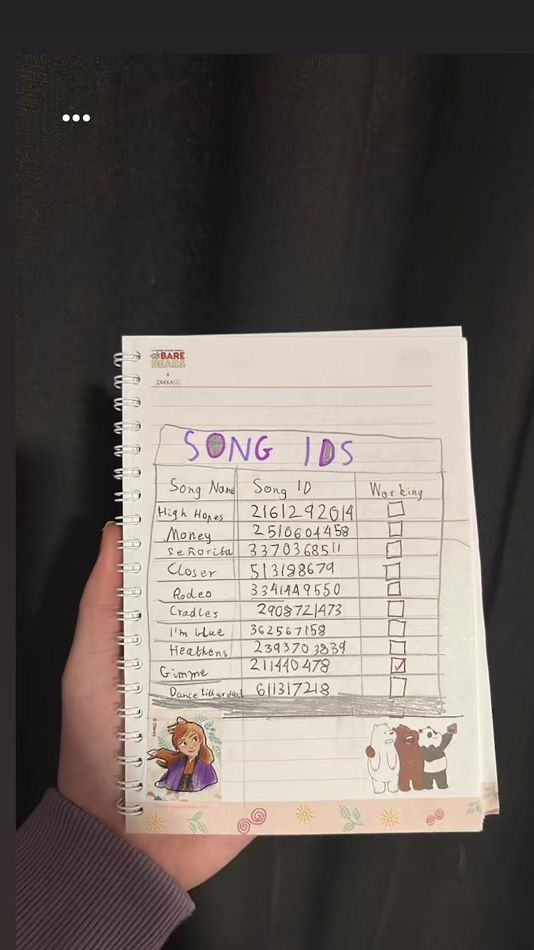 BARE
BEARS
x
ZAKKASG
SONG IDS
Song Name Song ID Working
High Hopes 2161292014
Money 2510604458
señorita 3370368511
Closer 513198679
Rodeo 3341449550
Cradles 2908721473
I'm blue 362567158
Heathens 2393703839
Gimme 211440478
Dance till ur dead 611317218
© Disney